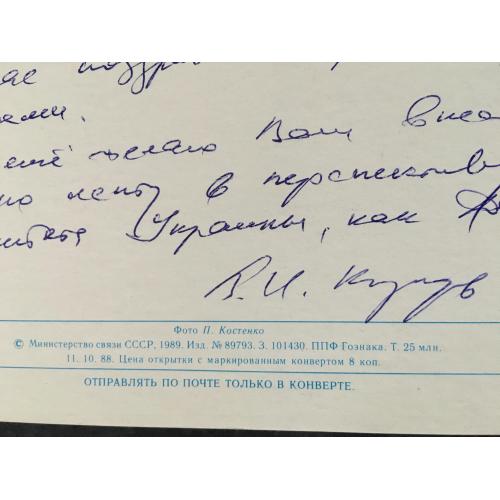 ещё желаю Вам внес
лепту в перспектив
Украины, как
В. И.
Фото П. Костенко
© Министерство связи СССР, 1989. Изд. № 89793. З. 101430. ППФ Гознака. Т. 25 млн.
11. 10. 88. Цена открытки с маркированным конвертом 8 коп.
ОТПРАВЛЯТЬ ПО ПОЧТЕ ТОЛЬКО В КОНВЕРТЕ.